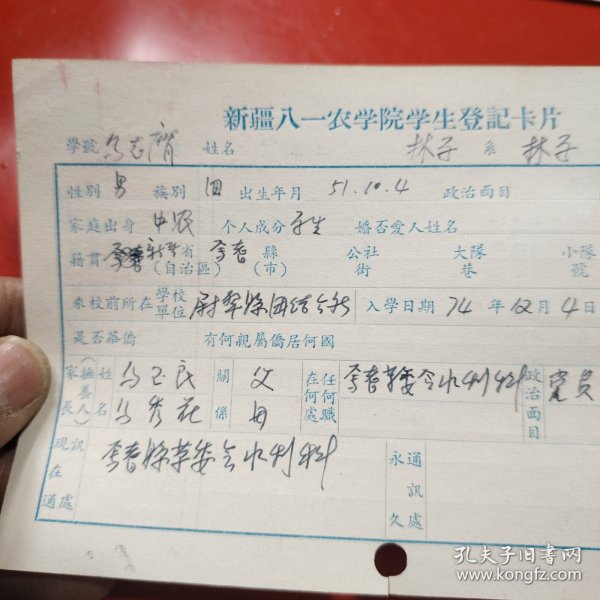 新疆八一农学院学生登記卡片
學號 马志 姓名 林子 系 林子
性别 男 族别 回 出生年月 51.10.4 政治面目
家庭出身 中农 个人成分 学生 婚否愛人姓名
籍貫 新疆 省(自治區) 縣(市) 公社街 大隊巷 小隊號
來校前所在學校單位 尉犂縣团结公社 入學日期 74 年 10 月 4 日
是否華僑 有何親屬僑居何國
家長(撫養人) 姓名 马玉良 關係 父 在何處任何職 革委会水利科 政治面目 党员
马秀花 母
現在通訊處 縣革委会水利科 永久通訊處
孔夫子旧书网
www.kongfz.com